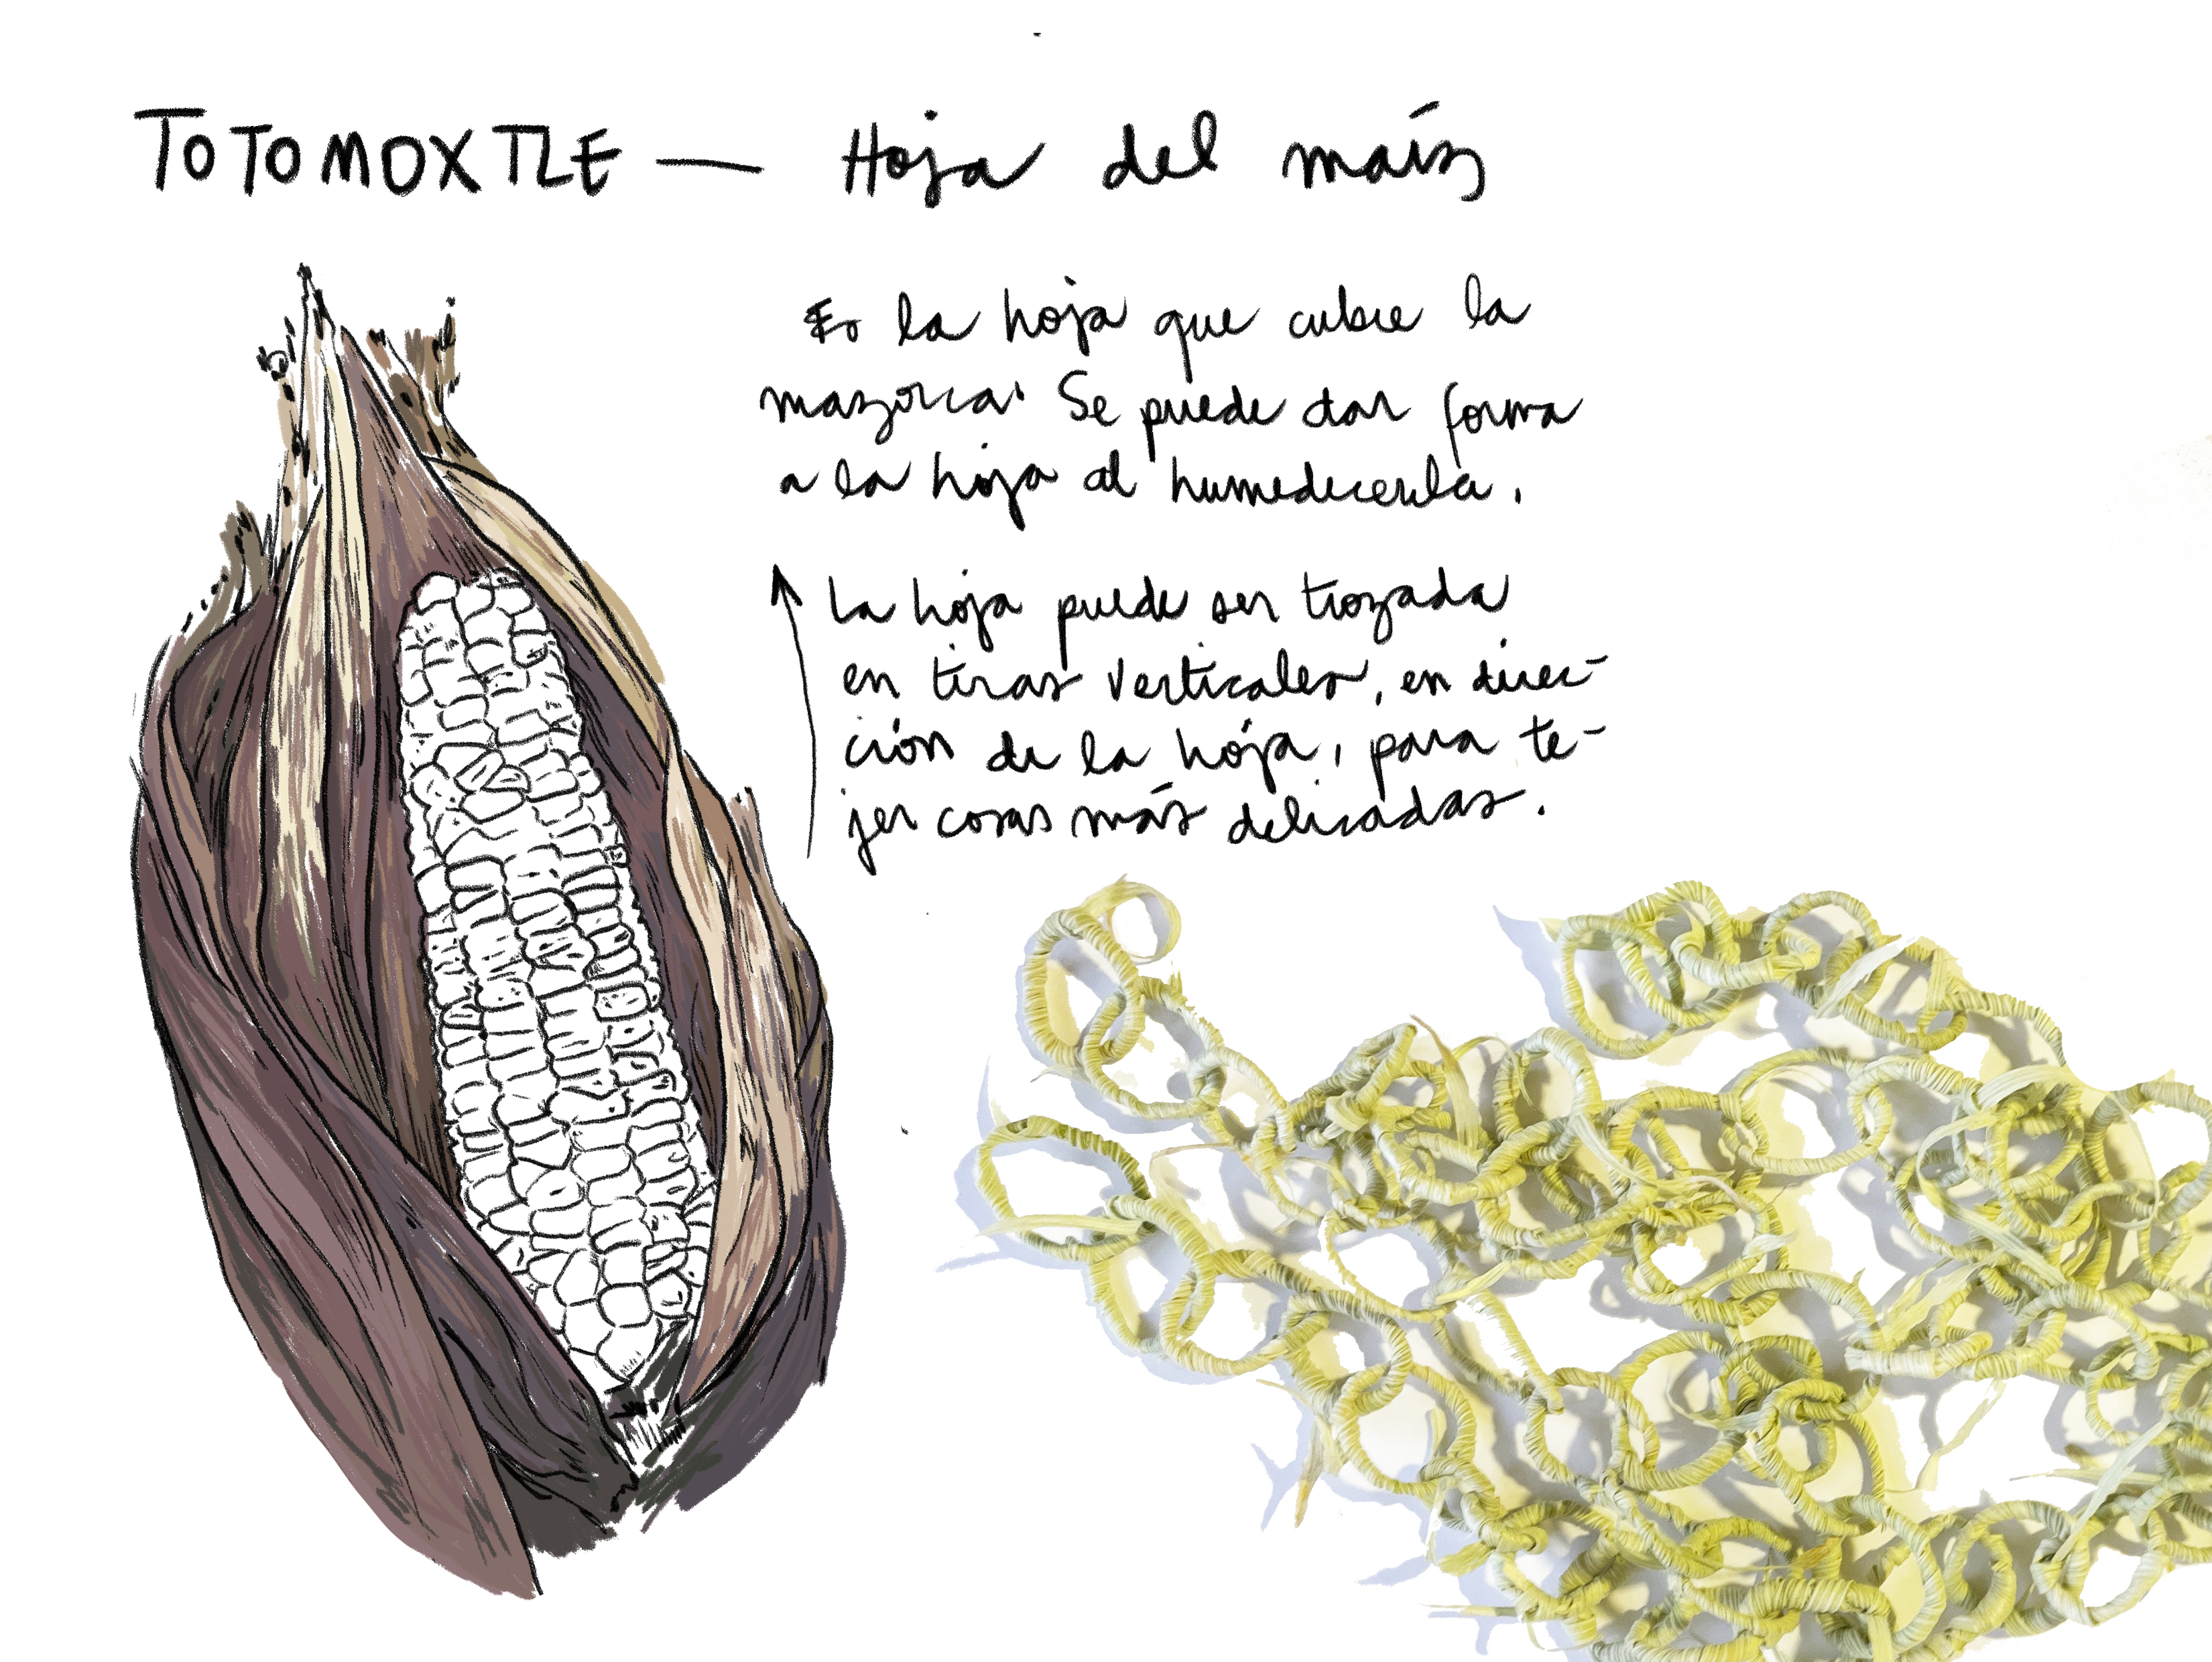 TOTOMOXTLE — Hoja del maíz
Es la hoja que cubre la
mazorca. Se puede dar forma
a la hoja al humedecerla.
La hoja puede ser trozada
en tiras verticales, en direc-
ción de la hoja, para te-
jer cosas más delicadas.